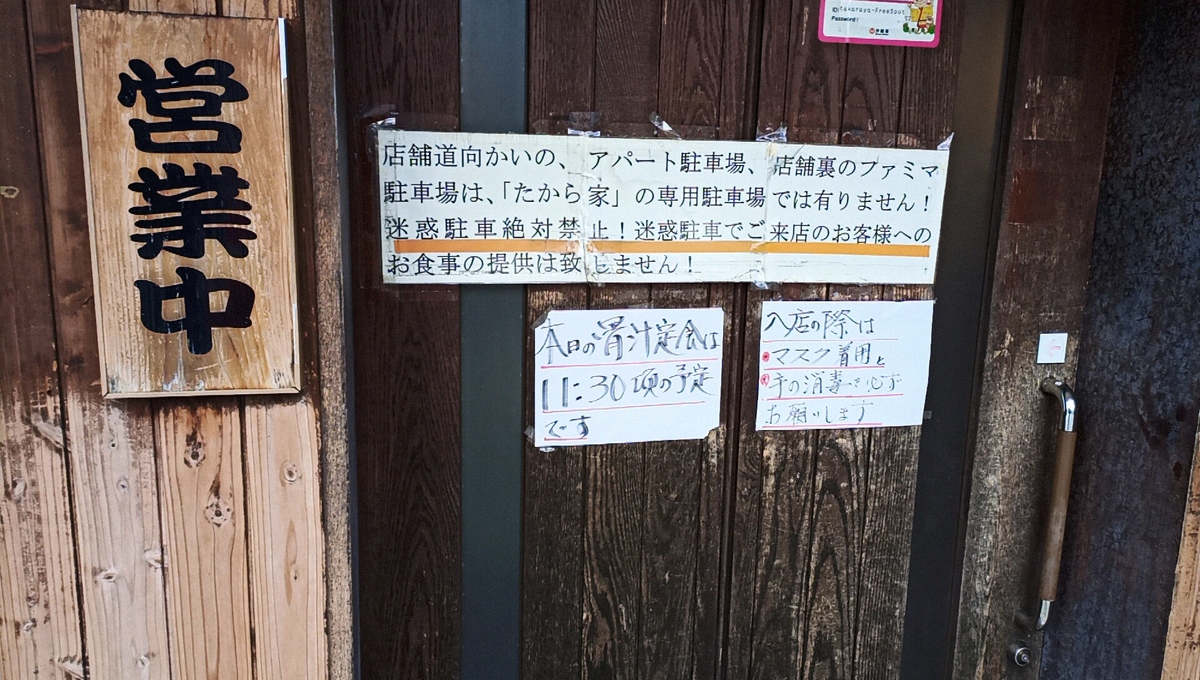 営業中
takaraya-FreeSpot
Password:
店舗道向かいの、アパート駐車場、店舗裏のファミマ
駐車場は、「たから家」の専用駐車場では有りません！
迷惑駐車絶対禁止！迷惑駐車でご来店のお客様への
お食事の提供は致しません！
本日の骨汁定食は
11:30頃の予定
です
入店の際は
マスク着用と
手の消毒を必ず
お願いします